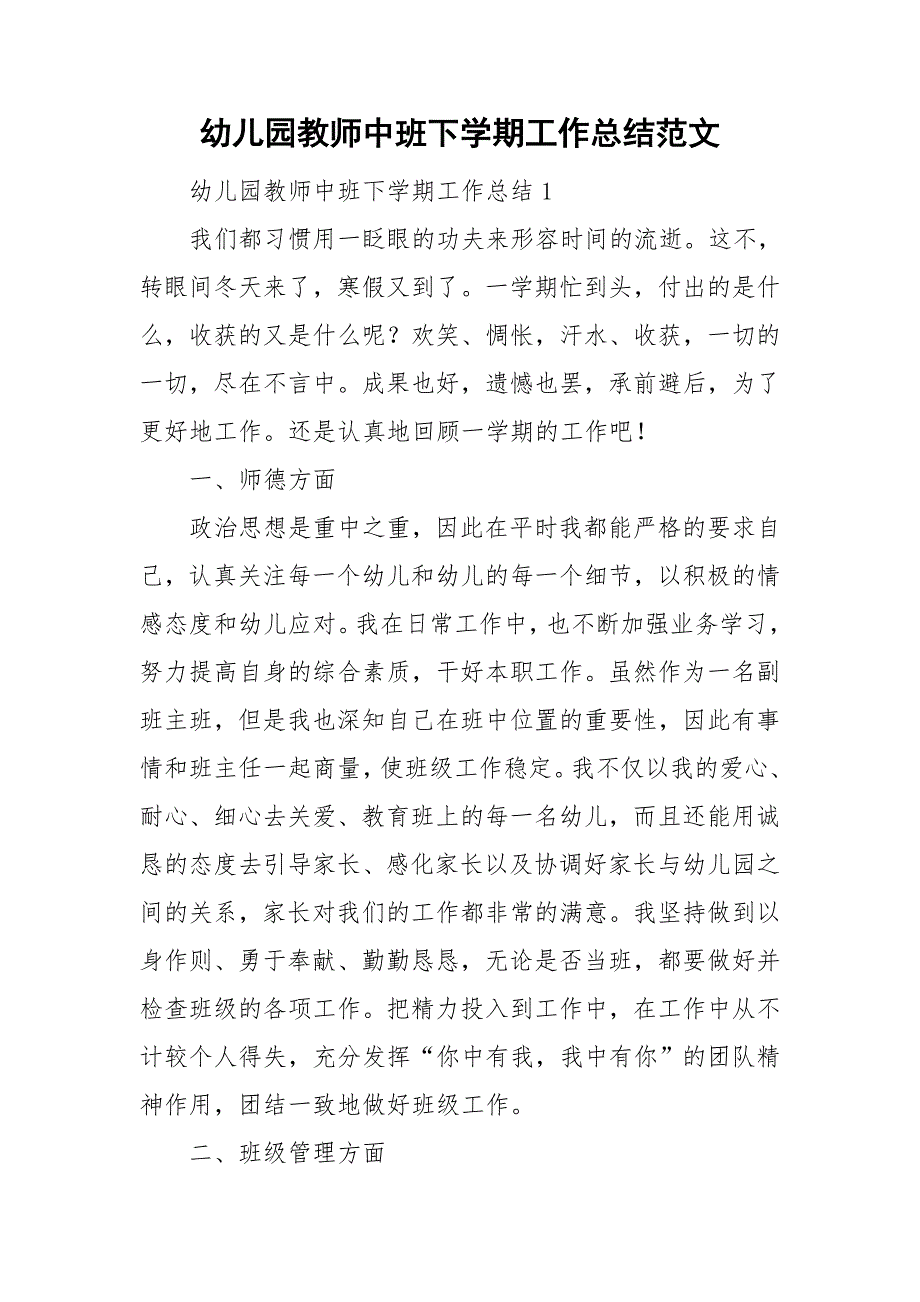 幼儿园教师中班下学期工作总结范文
幼儿园教师中班下学期工作总结 1
我们都习惯用一眨眼的功夫来形容时间的流逝。这不，
转眼间冬天来了，寒假又到了。一学期忙到头，付出的是什
么，收获的又是什么呢？欢笑、惆怅，汗水、收获，一切的
一切，尽在不言中。成果也好，遗憾也罢，承前避后，为了
更好地工作。还是认真地回顾一学期的工作吧！
一、师德方面
政治思想是重中之重，因此在平时我都能严格的要求自
己，认真关注每一个幼儿和幼儿的每一个细节，以积极的情
感态度和幼儿应对。我在日常工作中，也不断加强业务学习，
努力提高自身的综合素质，干好本职工作。虽然作为一名副
班主班，但是我也深知自己在班中位置的重要性，因此有事
情和班主任一起商量，使班级工作稳定。我不仅以我的爱心、
耐心、细心去关爱、教育班上的每一名幼儿，而且还能用诚
恳的态度去引导家长、感化家长以及协调好家长与幼儿园之
间的关系，家长对我们的工作都非常的满意。我坚持做到以
身作则、勇于奉献、勤勤恳恳，无论是否当班，都要做好并
检查班级的各项工作。把精力投入到工作中，在工作中从不
计较个人得失，充分发挥“你中有我，我中有你”的团队精
神作用，团结一致地做好班级工作。
二、班级管理方面